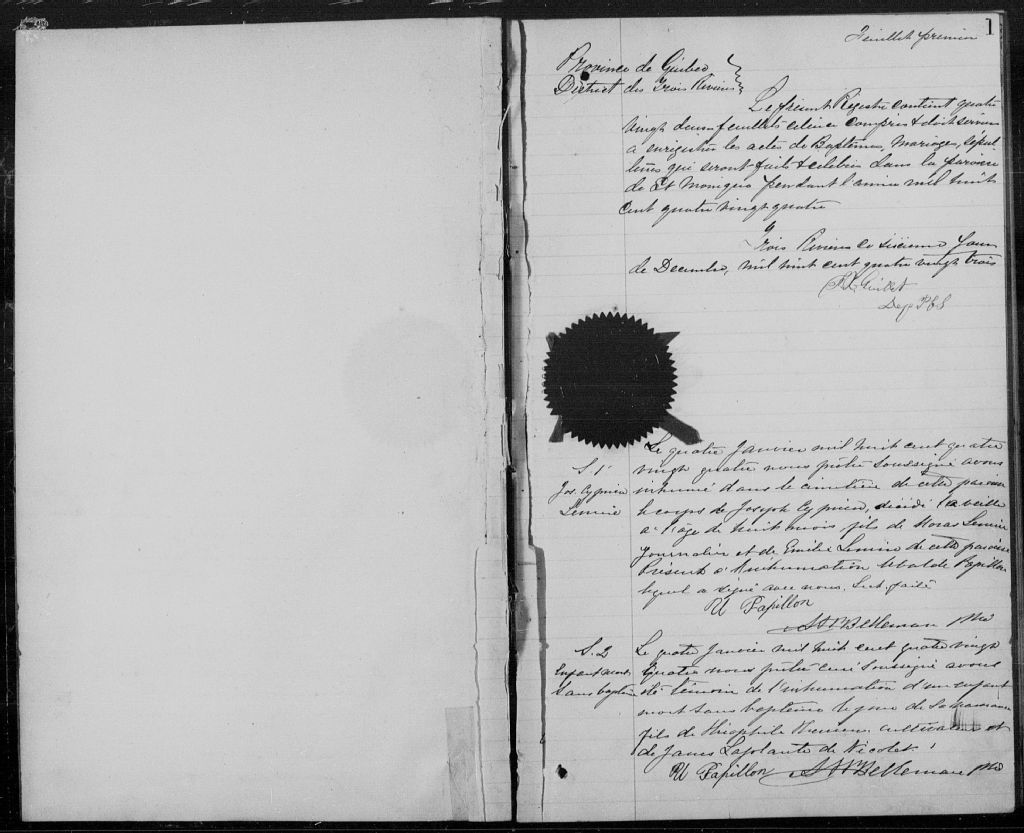 1
Feuillet premier
Province de Québec
District des Trois Rivières
Le présent Registre contient quatre
vingt deux feuillets celui-ci compris & doit servir
à enregistrer les actes de Baptêmes, Mariages, Sépul
tures qui seront faits & célébrés dans la paroisse
de St pendant l'année mil huit
cent quatre vingt quatre
Trois Rivières ce sixième jour
de Décembre, mil huit cent quatre vingt trois
Guillet
Dep P C S
S. 1
Jos. Cyprien
Lemire
Le quatre Janvier mil huit cent quatre
vingt quatre nous prêtre soussigné avons
inhumé dans le cimetière de cette paroisse
le corps de Joseph Cyprien, décédé la veille
à l'âge de huit mois fils de Moras Lemire
journalier et de Emilie Lemire de cette paroisse
Présent à l'inhumation Papillon
lequel a signé avec nous. Lect. faite
U Papillon
Belleman Ptre
S. 2
Enfant mort
sans baptême
Le quatre Janvier mil huit cent quatre vingt
quatre nous prêtre curé soussigné avons
été témoin de l'inhumation d'un enfant
mort sans baptême le jour de sa naissance
fils de Théophile cultivateur et
de Laplante de Nicolet.
U Papillon Belleman Ptre